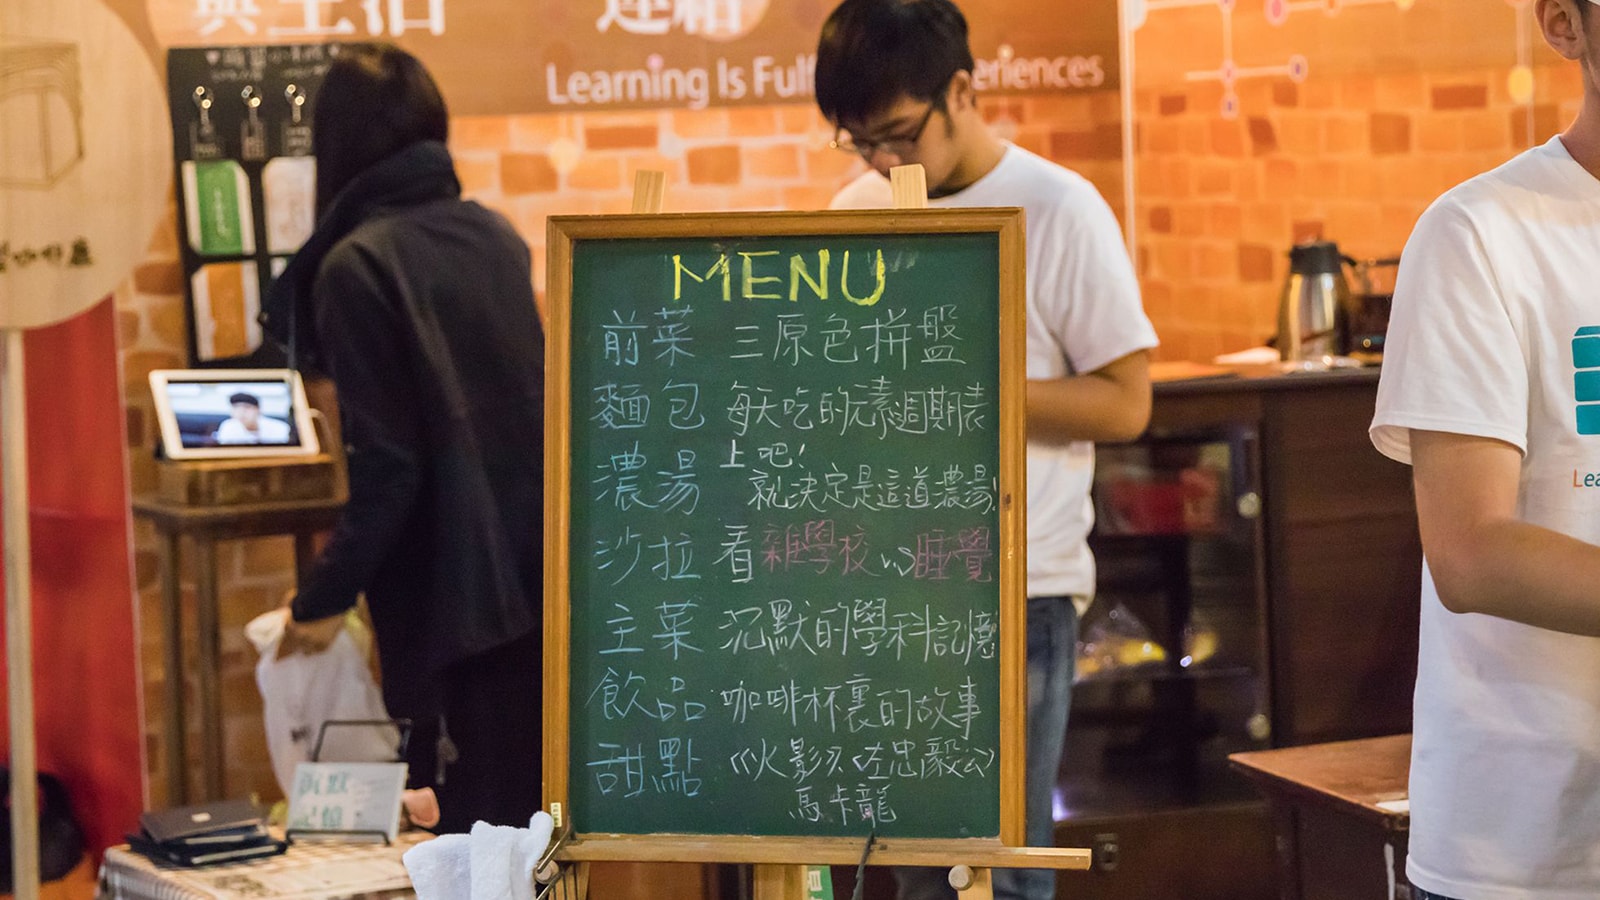 與生活
連結
Learning Is Fulf
eriences
MENU
前菜 三原色拼盤
麵包 每天吃的元素週期表
上吧!
濃湯 就決定是這道濃湯!
沙拉 看雜學校vs睡覺
主菜 沉默的學科記憶
飲品 咖啡杯裏的故事
甜點 《火影》《左忠毅公》
馬卡龍
沉默
記憶
Lea